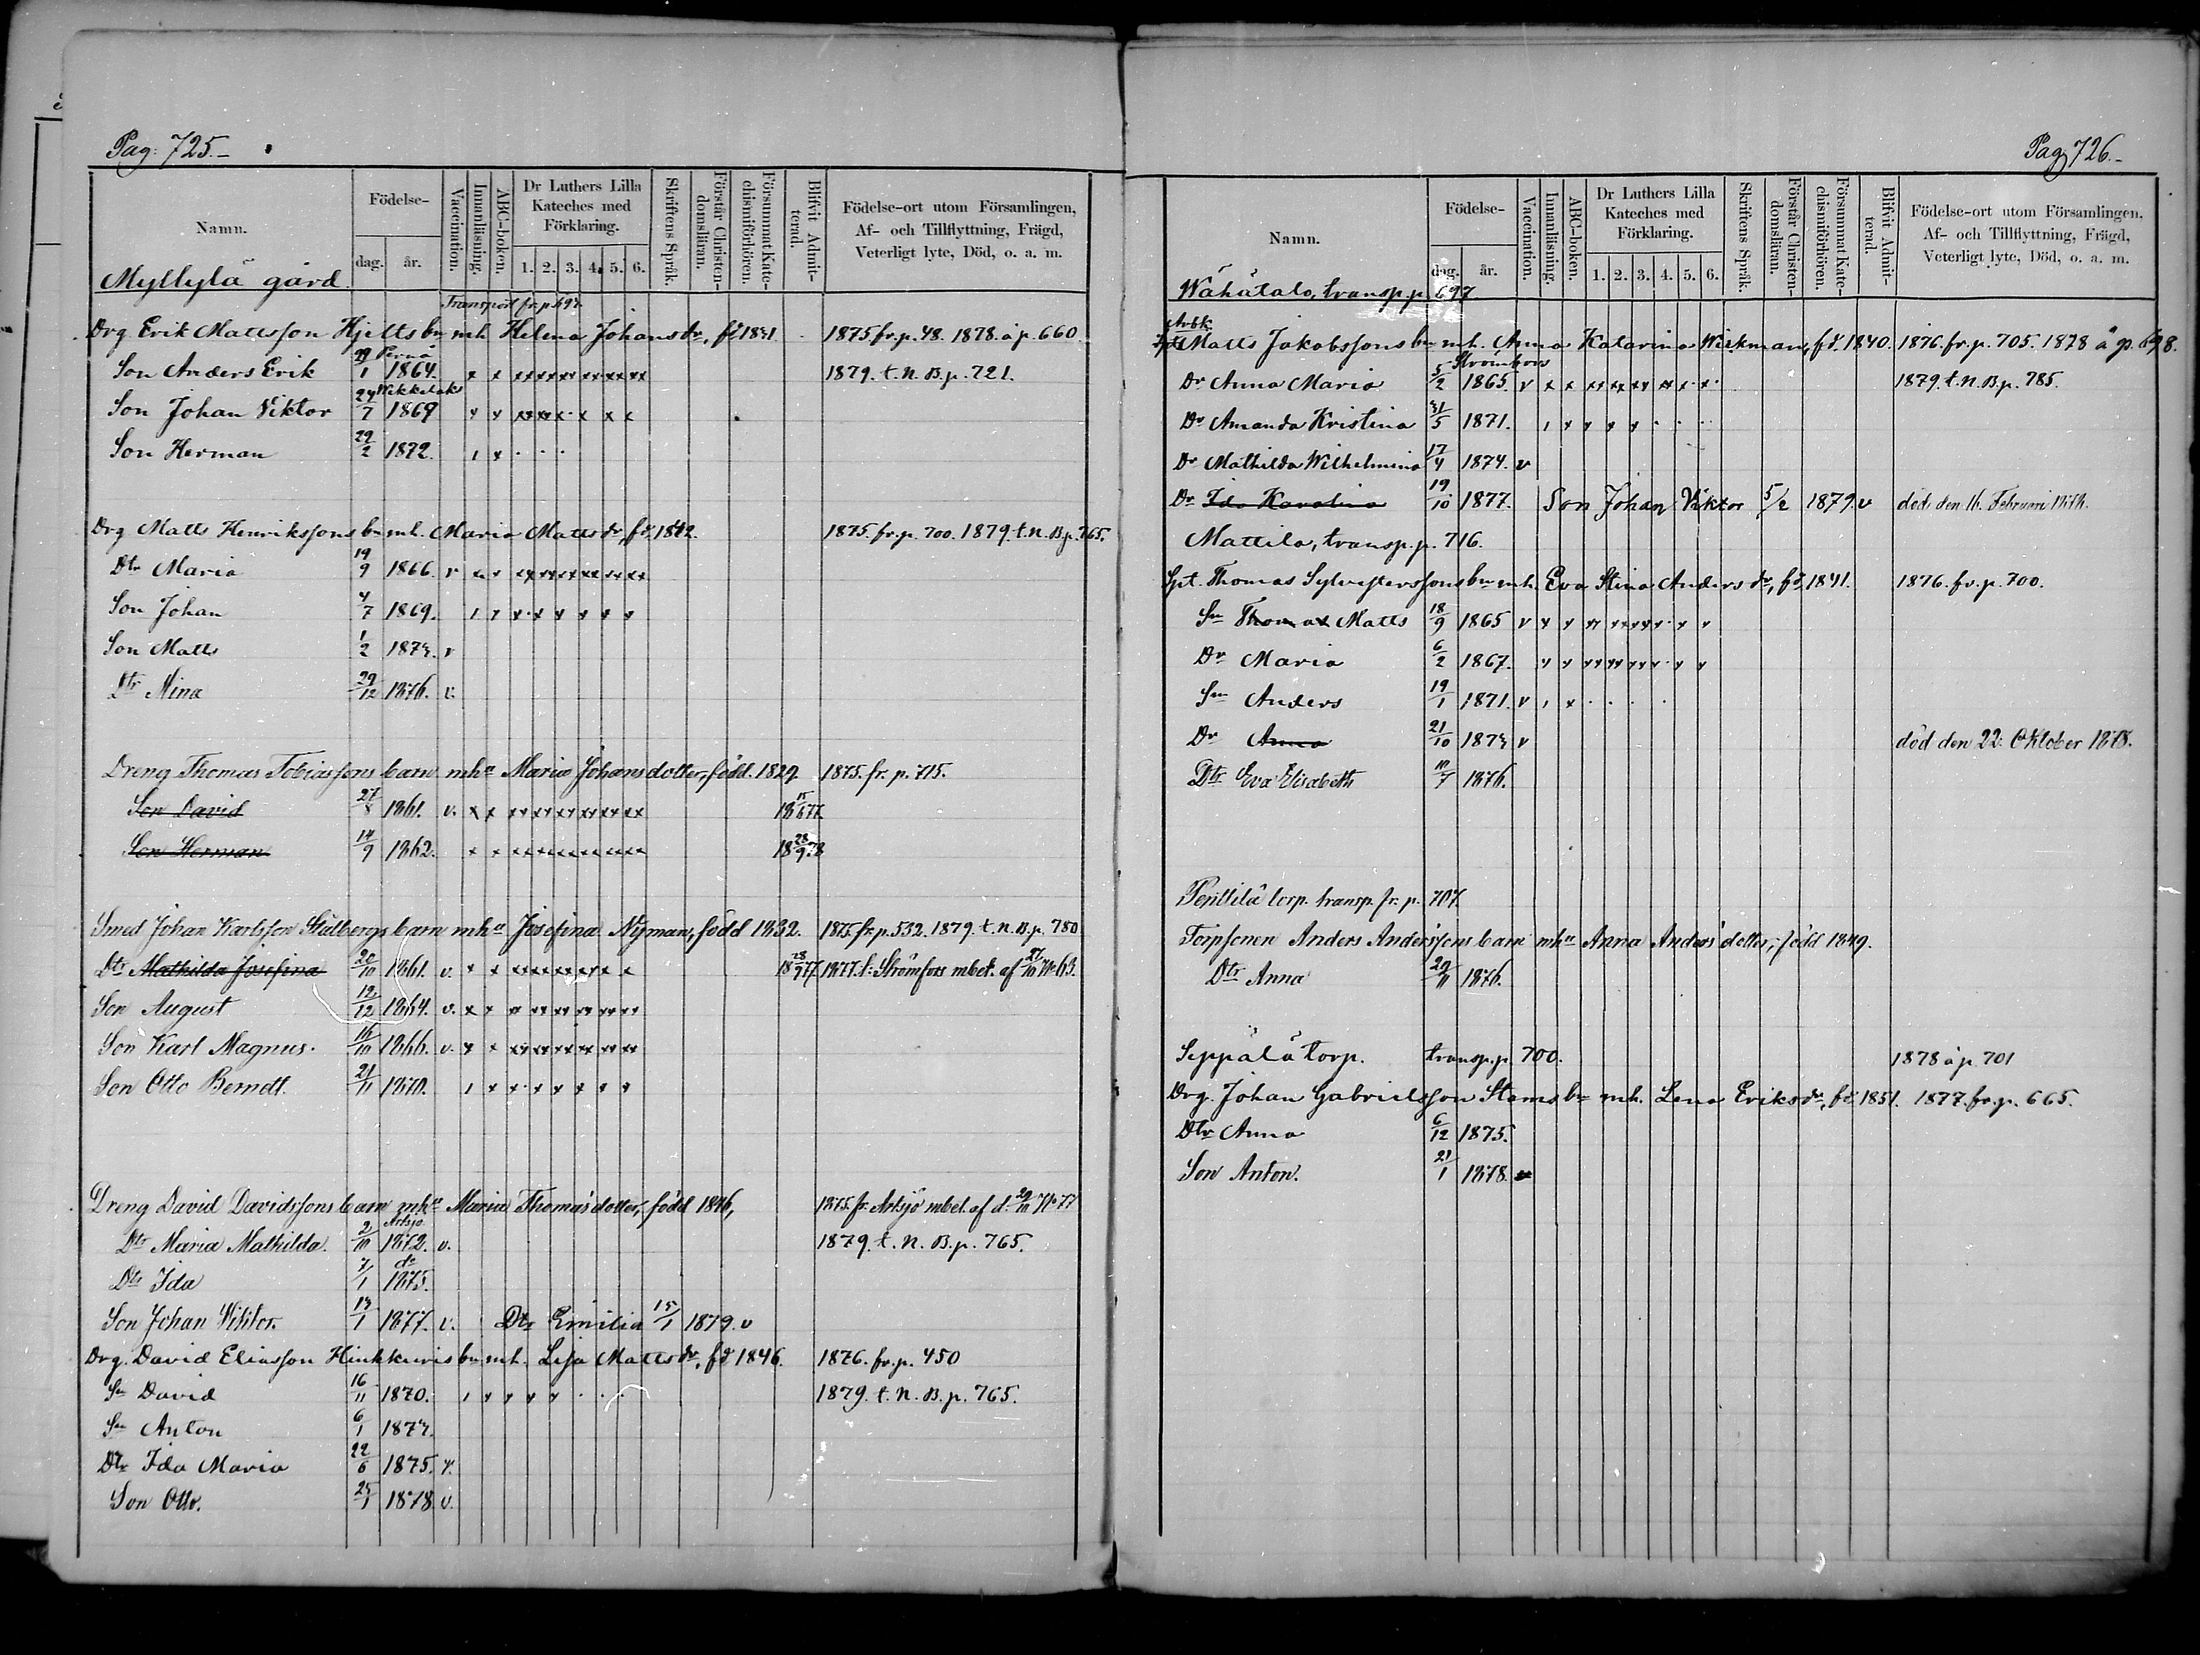 Pag: 725.
Namn.
Födelse-
dag.
år.
Vaccination.
Innanläsning.
ABC-boken.
Dr Luthers Lilla
Kateches med
Förklaring.
1. 2. 3. 4. 5. 6.
Skriftens Språk.
Förstår Christen-
domsläran.
Försummat Kate-
chismiförhören.
Blifvit Admit-
terad.
Födelse-ort utom Församlingen,
Af- och Tillflyttning, Frägd,
Veterligt lyte, Död, o. a. m.
Myllylä gård
Transport fr. p. 697
Drg. Erik Mattsson Hjelts bn mh. Helena Johansdr, fd 1831. 1875. fr. p. 48. 1878. å p. 660.
Pernå
Son Anders Erik 29/1 1864. x x xx xx xx xx xx xx 1879. t. N. B. p. 721.
Wekkelaks
Son Johan Viktor 24/7 1869
Son Herman 29/2 1872.
Drg Matts Henrikssons bn mh. Maria Mattsdr, fd. 1842. 1875. fr. p. 700. 1879. t. N. B. p. 765.
Dtr Maria 19/9 1866. v
Son Johan 4/7 1869.
Son Matts 1/2 1873. v
Dtr Nina 29/12 1876. v.
Dreng Thomas Tobiassons barn mha Maria Johansdotter, född. 1829 1875. fr. p. 715.
Son David 27/8 1861. v. x x xx xx xx xx xx xx 18 15/6 77
Son Herman 14/9 1862. x x xx xx xx xx xx xx 18 28/9 78
Smed Johan Karlsson Stålbergs barn mha Josefina Nyman, född 1832. 1875. fr. p. 532. 1879. t. N. B. p. 780
Dtr Mathilda Josefina 20/10 1861. v. 18 23/9 77 1877. t: Strömfors mbet. af 27/10 No 63.
Son August 12/12 1864. v.
Son Karl Magnus. 16/10 1866. v.
Son Otto Berndt. 21/11 1870.
Dreng David Davidssons barn mha Maria Thomasdotter, född 1846, 1875. fr. Artsjö mbet. af d. 29/10 No 77
Artsjö
Dtr Maria Mathilda. 2/10 1872. v. 1879. t. N. B. p. 765.
do
Dtr Ida 7/1 1875.
Son Johan Viktor. 13/1 1877. v. Dtr Emilia 15/1 1879. v
Drg. David Eliasson Hinkkuris bn mh. Lisa Mattsdr, fd 1846. 1876. fr. p. 450
Sn David 16/11 1870. 1879. t. N. B. p. 765.
Sn Anton 6/1 1873.
Dtr Ida Maria 22/6 1875. v.
Son Otto. 23/1 1878 v.
Pag 726.
Namn.
Födelse-
dag.
år.
Vaccination.
Innanläsning.
ABC-boken.
Dr Luthers Lilla
Kateches med
Förklaring.
1. 2. 3. 4. 5. 6.
Skriftens Språk.
Förstår Christen-
domsläran.
Försummat Kate-
chismiförhören.
Blifvit Admit-
terad.
Födelse-ort utom Församlingen,
Af- och Tillflyttning, Frägd,
Veterligt lyte, Död, o. a. m.
Wähätalo, transp. p. 697
Arbk.
Matts Jakobssons bn mh. Anna Katarina Wickman, fd. 1840. 1876. fr. p. 705. 1878 å p. 698.
Strömfors
Dr Anna Maria 5/2 1865. v 1879. t. N. B. p. 785.
Dr Amanda Kristina 31/5 1871.
Dr Mathilda Wilhelmina 17/4 1874. v
Dr Ida Karolina 19/10 1877. Son Johan Viktor 5/2 1879. v död den 16. Februari 1878.
Mattila, transp. p. 716.
Spt. Thomas Sylvesterssons bn mh. Eva Stina Andersdr, fd. 1841. 1876. fr. p. 700.
Sn Thomas Matts 18/9 1865 v
Dr Maria 6/2 1867.
Sn Anders 19/1 1871. v
Dr Anna 21/10 1873 v död den 22. Oktober 1878.
Dtr Eva Elisabeth 10/7 1876.
Penttilä torp. transp. fr. p. 707
Torpsonen Anders Anderssons barn mha Anna Andersdotter, född 1849.
Dtr Anna 20/11 1876.
Seppälä torp. transp. p. 700. 1878 å p. 701
Drg. Johan Gabrielsson Stams bn mh. Lena Eriksdr, fd 1851. 1877. fr. p. 665.
Dtr Anna 6/12 1875.
Son Anton. 21/1 1878. v